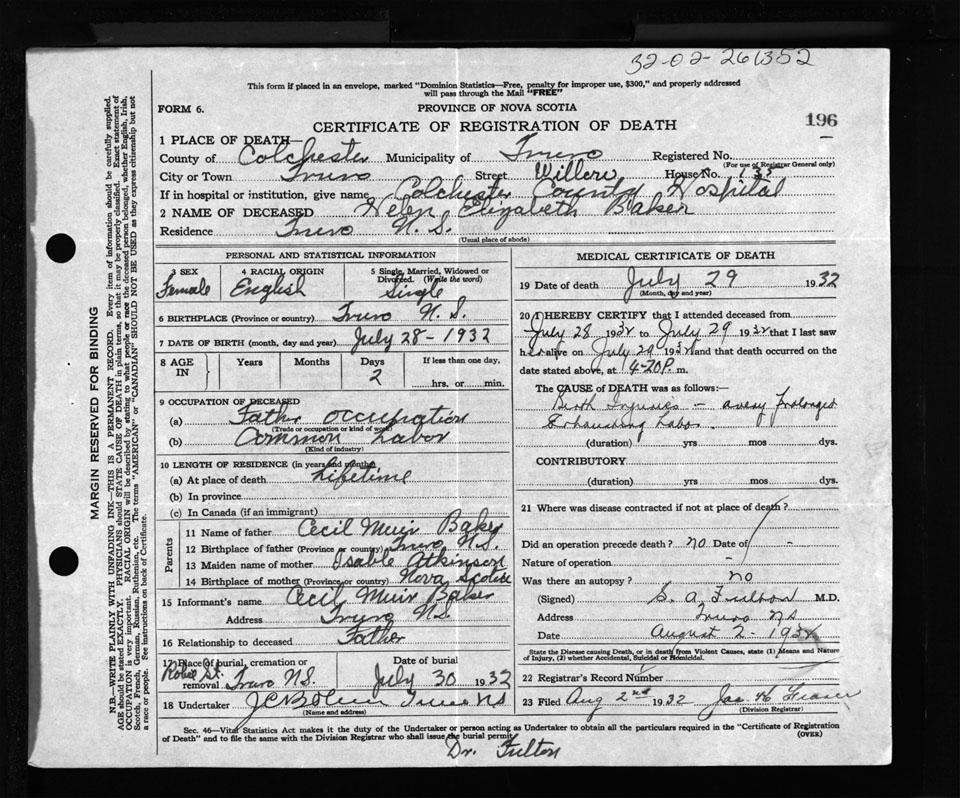 32-02-261352
This form if placed in an envelope, marked "Dominion Statistics—Free, penalty for improper use, $300," and properly addressed
will pass through the Mail "FREE"
FORM 6.
PROVINCE OF NOVA SCOTIA
CERTIFICATE OF REGISTRATION OF DEATH
196
1 PLACE OF DEATH—
County of Colchester Municipality of Truro Registered No.
(For use of Registrar General only)
City or Town Truro Street Willow House No.
If in hospital or institution, give name Colchester County Hospital
2 NAME OF DECEASED Helen Elizabeth Baker
Residence Truro N.S.
(Usual place of abode)
PERSONAL AND STATISTICAL INFORMATION
3 SEX Female
4 RACIAL ORIGIN English
5 Single, Married, Widowed or Divorced. (Write the word) Single
6 BIRTHPLACE (Province or country) Truro N.S.
7 DATE OF BIRTH (month, day and year) July 28 - 1932
8 AGE IN Years Months Days 2 If less than one day, hrs. or min.
9 OCCUPATION OF DECEASED
(a) Father occupation
(Trade or occupation or kind of work)
(b) Common Labor
(Kind of industry)
10 LENGTH OF RESIDENCE (in years and months)
(a) At place of death Lifetime
(b) In province
(c) In Canada (if an immigrant)
Parents
11 Name of father Cecil Muir Baker
12 Birthplace of father (Province or country) Truro N.S.
13 Maiden name of mother Isable Atkinson
14 Birthplace of mother (Province or country) Nova Scotia
15 Informant's name Cecil Muir Baker
Address Truro N.S.
16 Relationship to deceased Father
17 Place of burial, cremation or removal Robie St. Truro N.S.
Date of burial July 30 1932
18 Undertaker Truro N.S.
(Name and address)
MEDICAL CERTIFICATE OF DEATH
19 Date of death July 29 1932
(Month, day and year)
20 I HEREBY CERTIFY that I attended deceased from
July 28 1932 to July 29 1932 that I last saw
her alive on July 29 1932 and that death occurred on
date stated above, at 4-20 P. m.
The CAUSE OF DEATH was as follows:
Birth Injuries - a very Prolonged
Exhausting Labor.
(duration) yrs mos dys.
CONTRIBUTORY
(duration) yrs mos dys.
21 Where was disease contracted if not at place of death?
Did an operation precede death? no Date of -
Nature of operation -
Was there an autopsy? no
(Signed) S. A. Fulton M.D.
Address Truro NS
Date August 2 - 1932
State the Disease causing Death, or in death from Violent Causes, state (1) Means and Nature
of Injury, (2) whether Accidental, Suicidal or Homicidal.
22 Registrar's Record Number
23 Filed Aug 2nd 1932 Jas. H. Fraser
(Division Registrar)
Sec. 46—Vital Statistics Act makes it the duty of the Undertaker or person acting as Undertaker to obtain all the particulars required in the "Certificate of Registration
of Death" and to file the same with the Division Registrar who shall issue the burial permit.
(OVER)
Dr. Fulton
MARGIN RESERVED FOR BINDING
N.B.—WRITE PLAINLY WITH UNFADING INK—THIS IS A PERMANENT RECORD. Every item of information should be carefully supplied.
AGE should be stated EXACTLY. PHYSICIANS should STATE CAUSE OF DEATH in plain terms, so that it may be properly classified. Exact statement of
OCCUPATION is very important. RACIAL ORIGIN will be described by stating to what people or race the deceased person belonged, whether English, Irish,
Scotch, French, German, Russian, Ruthenian, etc. The terms "AMERICAN" or "CANADIAN" SHOULD NOT BE USED as they express citizenship but not
a race or people. See instructions on back of Certificate.